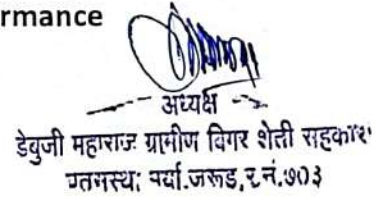 rmance
अध्यक्ष
डेबुजी महाराज ग्रामीण बिगर शेती सहकार
पतसंस्था मर्या.जरूड,र.नं.७०३